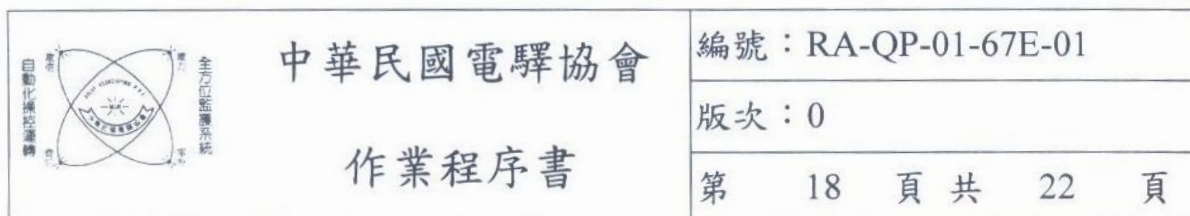 自動化操控運轉
全方位監護系統
中華民國電驛協會
作業程序書
編號：RA-QP-01-67E-01
版次：0
第 18 頁 共 22 頁